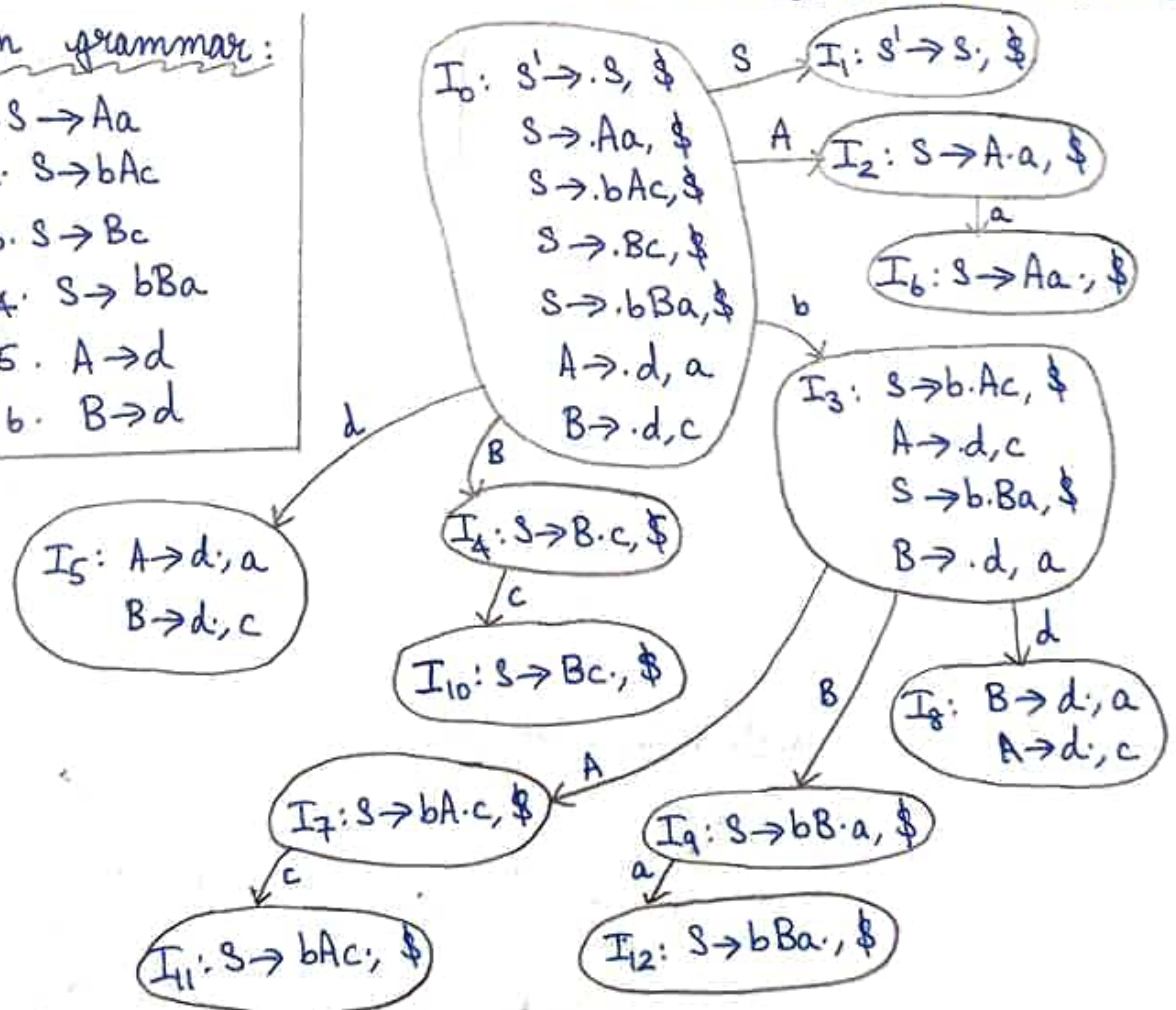 n grammar:
S → Aa
. S → bAc
. S → Bc
4. S → bBa
5. A → d
6. B → d
I0: S' → .S, $
S → .Aa, $
S → .bAc, $
S → .Bc, $
S → .bBa, $
A → .d, a
B → .d, c
S
I1: S' → S., $
A
I2: S → A.a, $
a
I6: S → Aa., $
b
I3: S → b.Ac, $
A → .d, c
S → b.Ba, $
B → .d, a
d
I5: A → d., a
B → d., c
B
I4: S → B.c, $
c
I10: S → Bc., $
d
I8: B → d., a
A → d., c
A
I7: S → bA.c, $
c
I11: S → bAc., $
B
I9: S → bB.a, $
a
I12: S → bBa., $